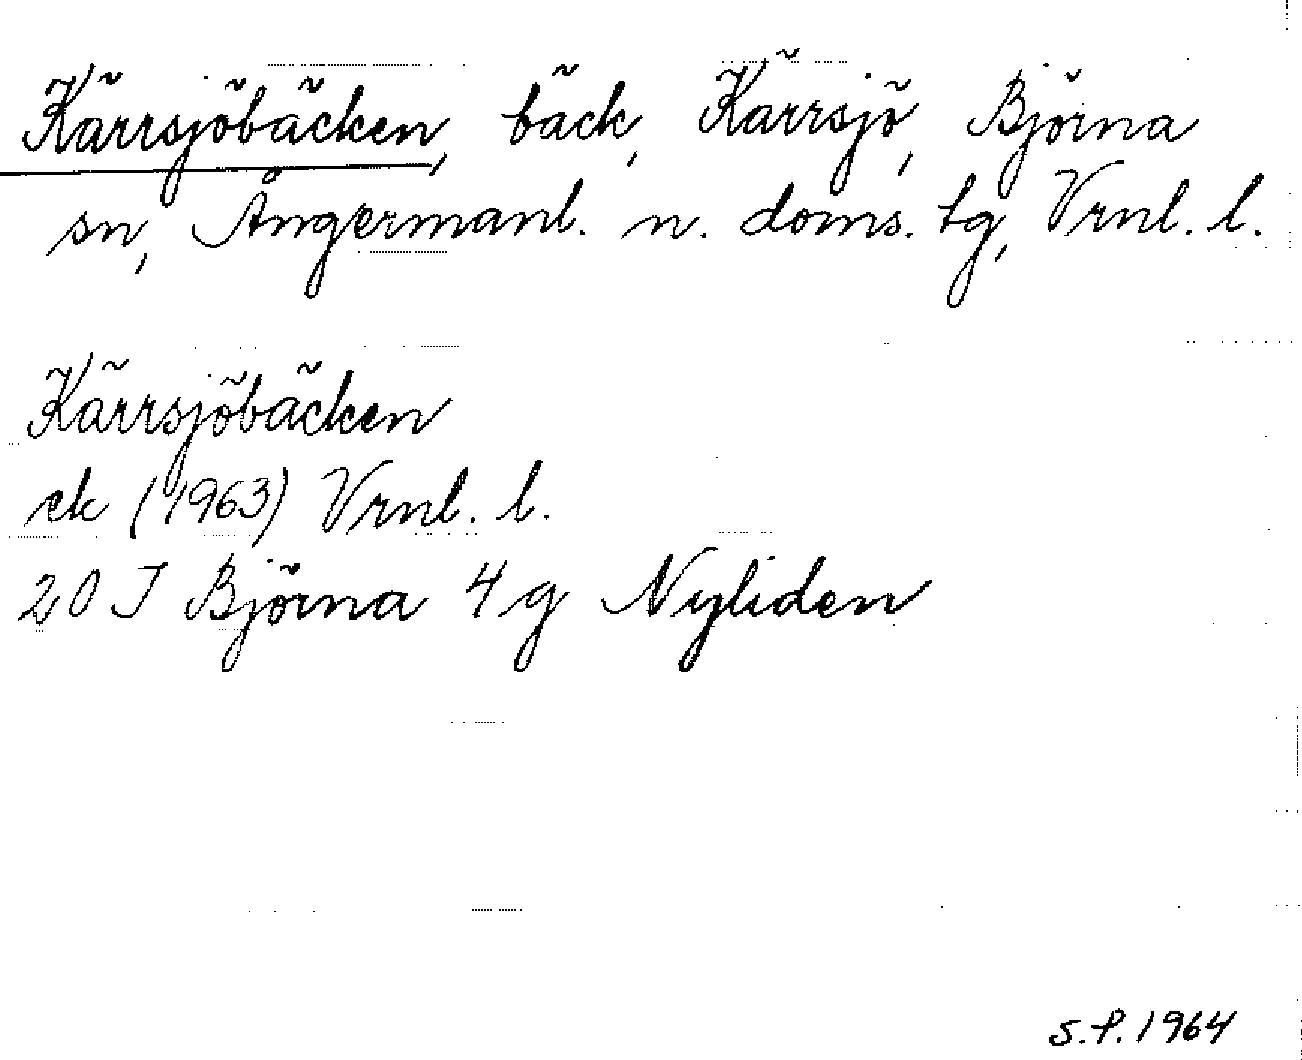 Kärrsjöbäcken, bäck, Kärrsjö, Björna
sn, Ångermanl. n. doms. tg, Vrnl. l.
Kärrsjöbäcken
ek (1963) Vrnl. l.
20 J Björna 4 g Nyliden
S.P. 1964